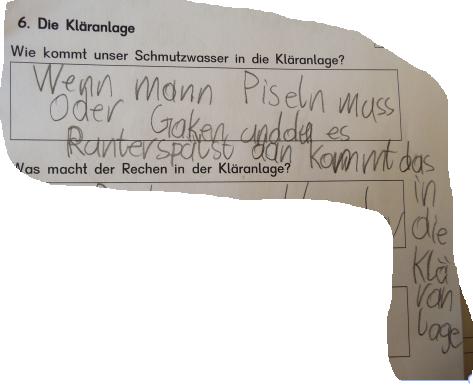 6. Die Kläranlage
Wie kommt unser Schmutzwasser in die Kläranlage?
Wenn mann Piseln muss
Oder Gaken und du es
Runterspülst dan kommt das
in
die
Klä
ran
lage
Was macht der Rechen in der Kläranlage?